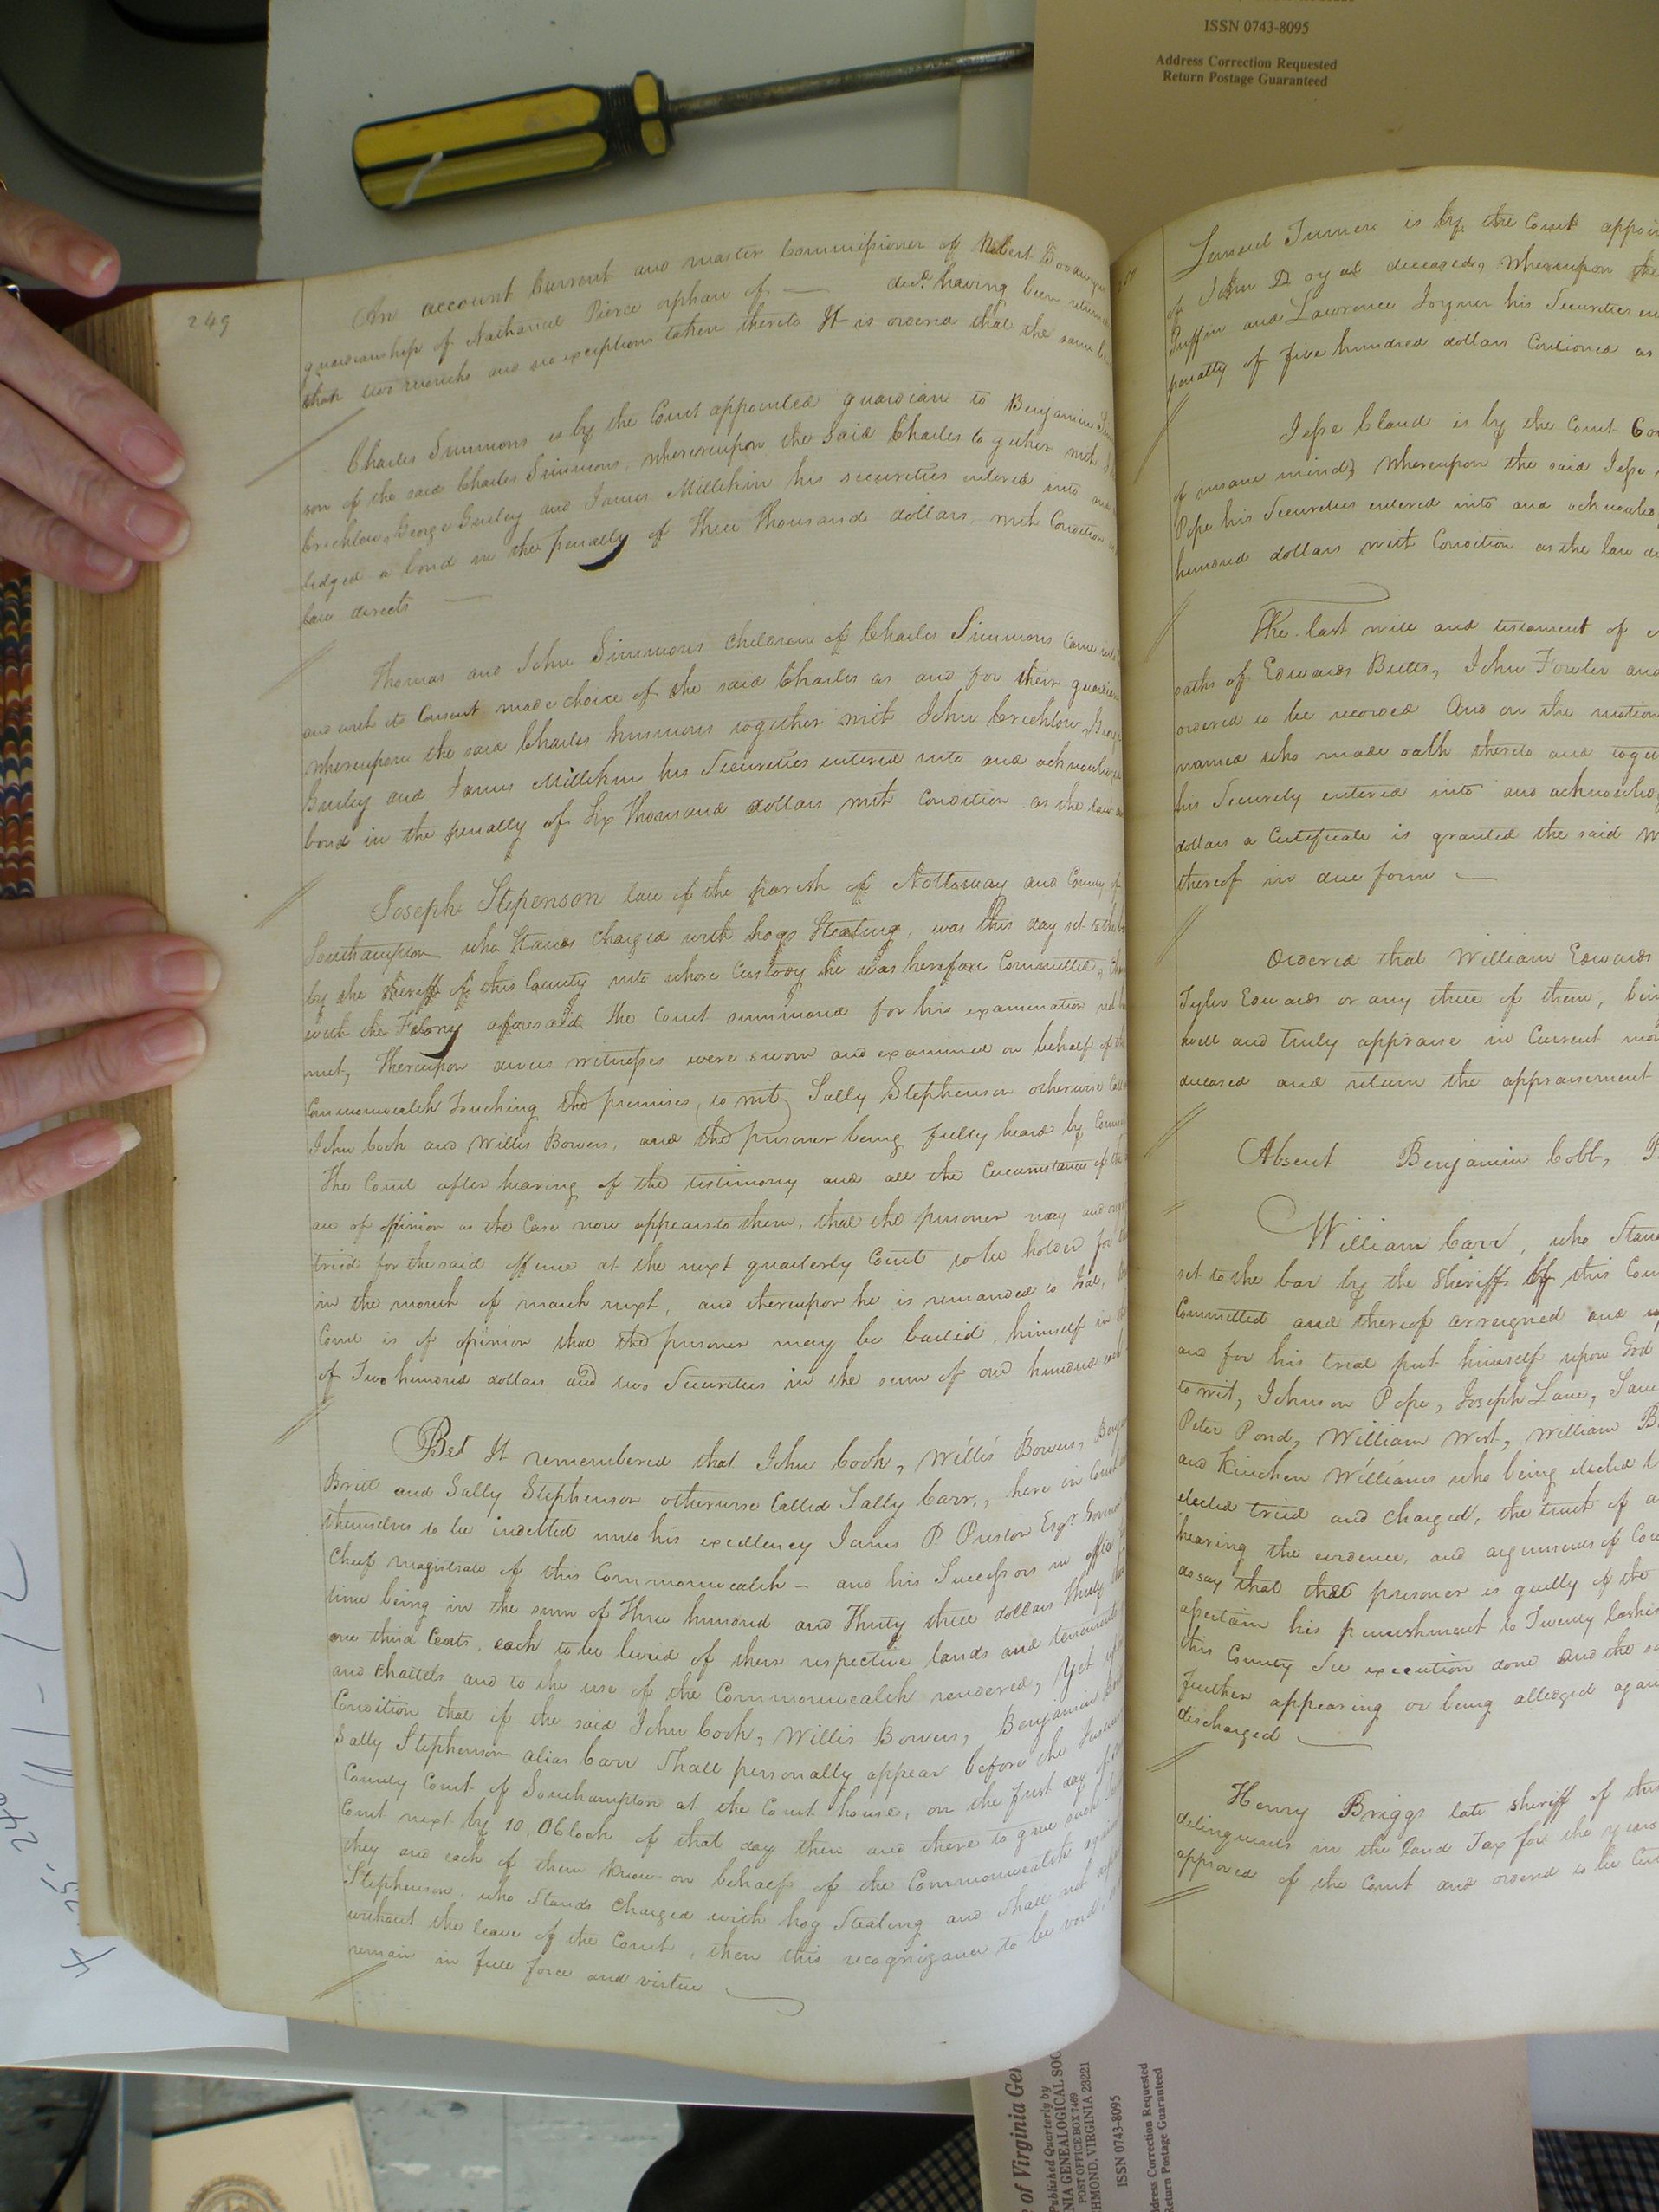 ISSN 0743-8095
Address Correction Requested
Return Postage Guaranteed
249
An account Current and master Commissioner of Robert Goodwyn
guardianship of Nathaniel Pierce orphan of — decd. having been
than two months and no exceptions taken thereto It is ordered that the same be
Charles Simmons is by the Court appointed guardian to Benjamin
son of the said Charles Simmons, whereupon the said Charles to gether with
Crichlow, George Gurley and James Millikin his securities entered into and
ledged a bond in the penalty of Three Thousand dollars, with Condition as
law directs —
Thomas and John Simmons children of Charles Simmons came into
and with its Consent made choice of the said Charles as and for their guardian
whereupon the said Charles Simmons together with John Crichlow, George
Gurley and James Millikin his Securities entered into and acknowledged
bond in the penalty of Six Thousand dollars with condition as the law
Joseph Stepenson late of the parish of Nottoway and County of
Southampton who Stands charged with hogs Stealing, was this day set to the bar
by the Sheriff of this County into whose Custody he was herefore Committed,
with the Felony aforesaid the Court summoned for his examination
met, Thereupon divers witnesses were sworn and examined on behalf of the
Commonwealth Touching the premises, to wit, Sally Stephenson otherwise
John Cook and Willis Bowers, and the prisoner being fully heard by
The Court after hearing of the testimony and all the Circumstances of the
are of opinion as the Case now appears to them, that the prisoner may and
tried for the said offence at the next quarterly Court to be holden for
in the month of march next, and thereupon he is remanded to Goal,
Court is of opinion that the prisoner may be bailed, himself in
of Two hundred dollars and two Securities in the sum of one hundred each
Bet It remembered that John Cook, Willis Bowers,
Britt and Sally Stephenson otherwise Called Sally Carr, here in Court
themselves to be indebted unto his excellency James P. Preston Esqr. Governor
Chief magistrate of this Commonwealth – and his Successors in office
time being in the sum of Three hundred and Thirty three dollars Thirty three
one third Cents, each to be levied of their respective lands and tenements
and chattels and to the use of the Commonwealth rendered, Yet upon
Condition that if the said John Cook, Willis Bowers, Benjamin
Sally Stephenson alias Carr Shall personally appear before the
County Court of Southampton at the Court house, on the first day of
Court next by 10. OClock of that day then and there to give such
they and each of them know on behalf of the Commonwealth against
Stephenson, who Stands Charged with hog Stealing and shall not
without the leave of the Court, then this recognizance to be void,
remain in full force and virtue
Lemuel Turner is by the Court
of John D deceased, whereupon the
Ruffin and Lawrence Joyner his Securities
penalty of five hundred dollars Conditioned as
Jesse Cloud is by the Court
of insane mind, Whereupon the said Jesse
Pope his Securities entered into and
hundred dollars with Condition as the law
The last will and testament of
oaths of Edwards Butts, John Fowler and
ordered to be recorded And on the motion
named who made oath thereto and
his Security entered into and
dollars a Certificate is granted the said
thereof in due form —
Ordered that William Edwards
Tyler Edwards or any three of them,
well and truly appraise in Current
deceased and return the appraisement
Absent Benjamin Cobb,
William Carr, who
set to the bar by the Sheriff of this
Committed and thereof arraigned and
and for his trial put himself upon God
to wit, Johnson Pope, Joseph Lane,
Peter Pond, William West, William
and Kinchen Williams who being elected
elected tried and charged, the truth of
hearing the evidence, and arguments of
do say that the prisoner is guilty of the
ascertain his punishment to Twenty
this County See execution done and the
further appearing or being alledged
discharged —
Henry Briggs late sheriff of this
delinquents in the land Tax for the years
approved of the Court and ordered to be
of Virginia
Published Quarterly by
POST OFFICE BOX 7469
VIRGINIA 23221
ISSN 0743-8095
Return Postage Guaranteed